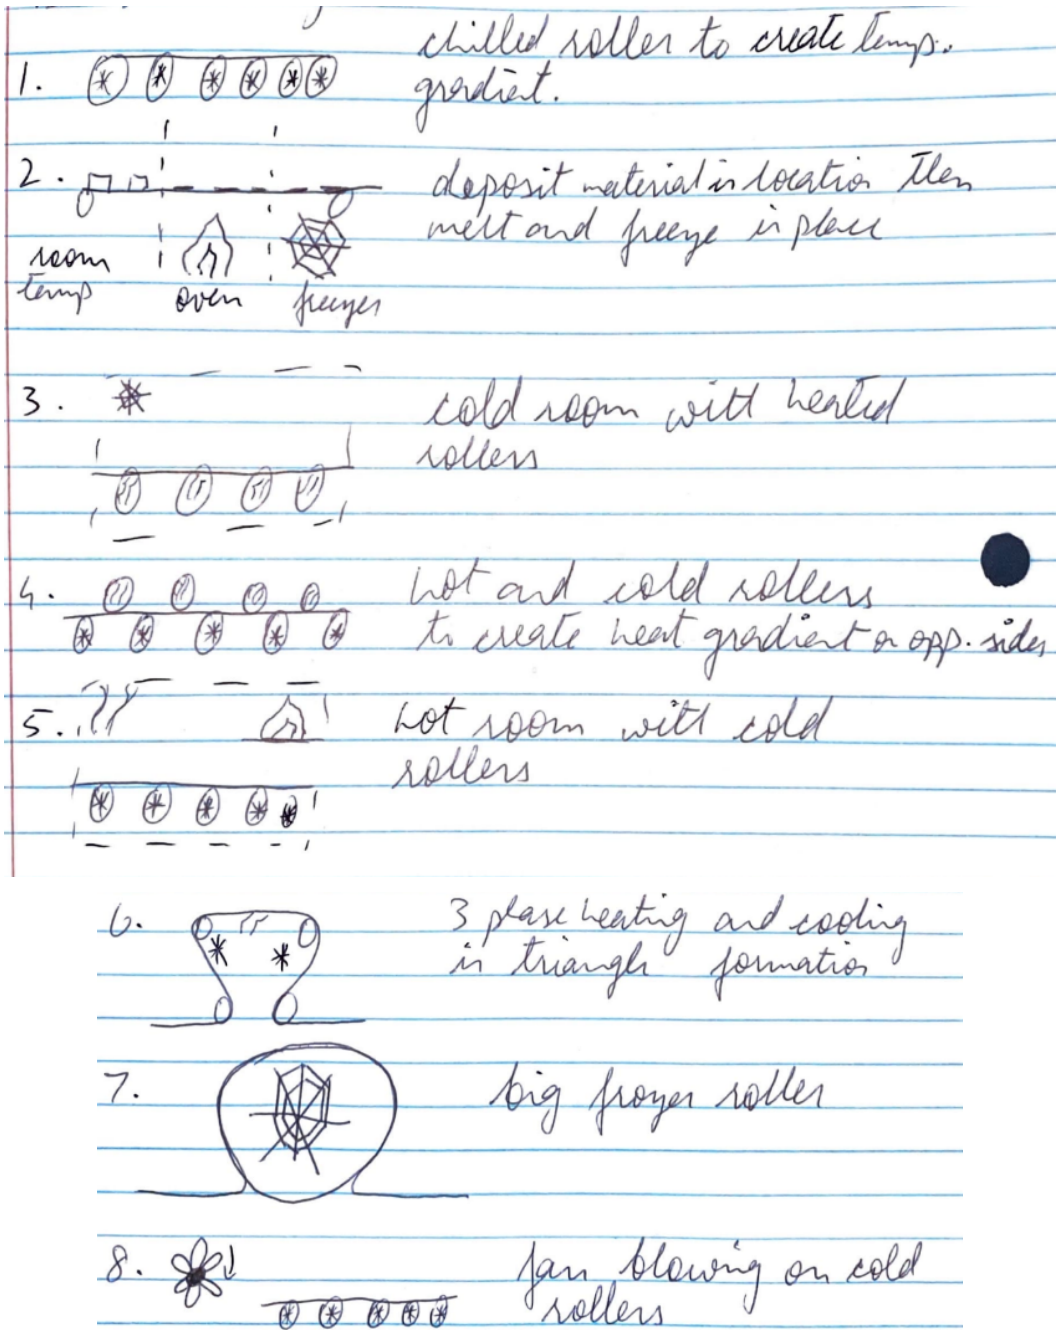 1. chilled roller to create temp.
gradient.
2. deposit material in location then
melt and freeze in place
room
temp
oven
freezer
3. cold room with heated
rollers
4. hot and cold rollers
to create heat gradient on opp. sides
5. hot room with cold
rollers
6. 3 phase heating and cooling
in triangle formation
7. big frozen roller
8. fan blowing on cold
rollers